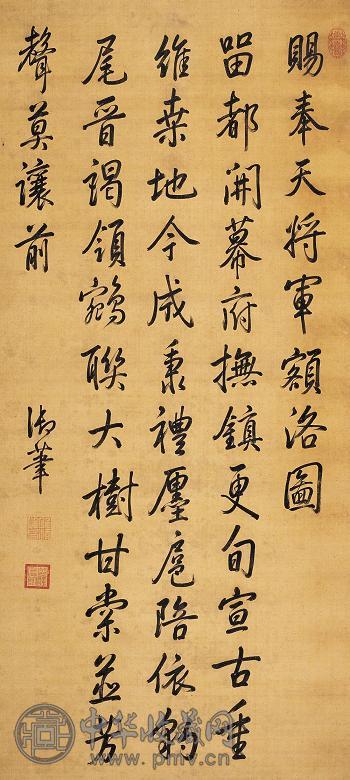 賜奉天將軍額洛圖
留都開幕府撫鎮更旬宣古重
維桑地今成秉禮廛扈陪依豹
尾晉謁領鵷聯大樹甘棠並芳
聲莫讓前
御筆
中华收藏网